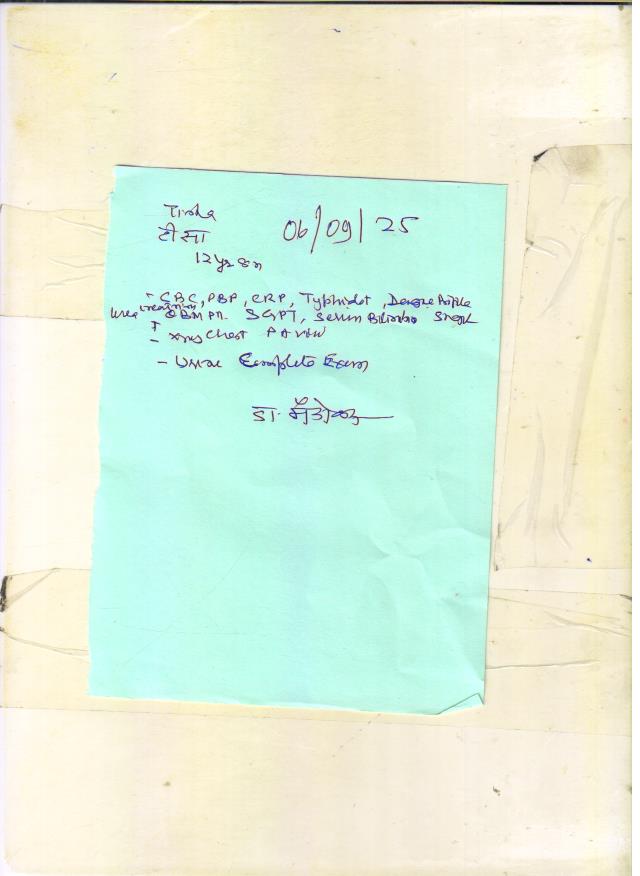 Tisha
टीसा
06/09/25
12 yrs
- CBC, PBP, CRP, Typhidot, Dengue Profile
Urea Creatinin SGPT, Serum Bilirubin
- Xray Chest PA view
- Urine Complete Exam
डा.